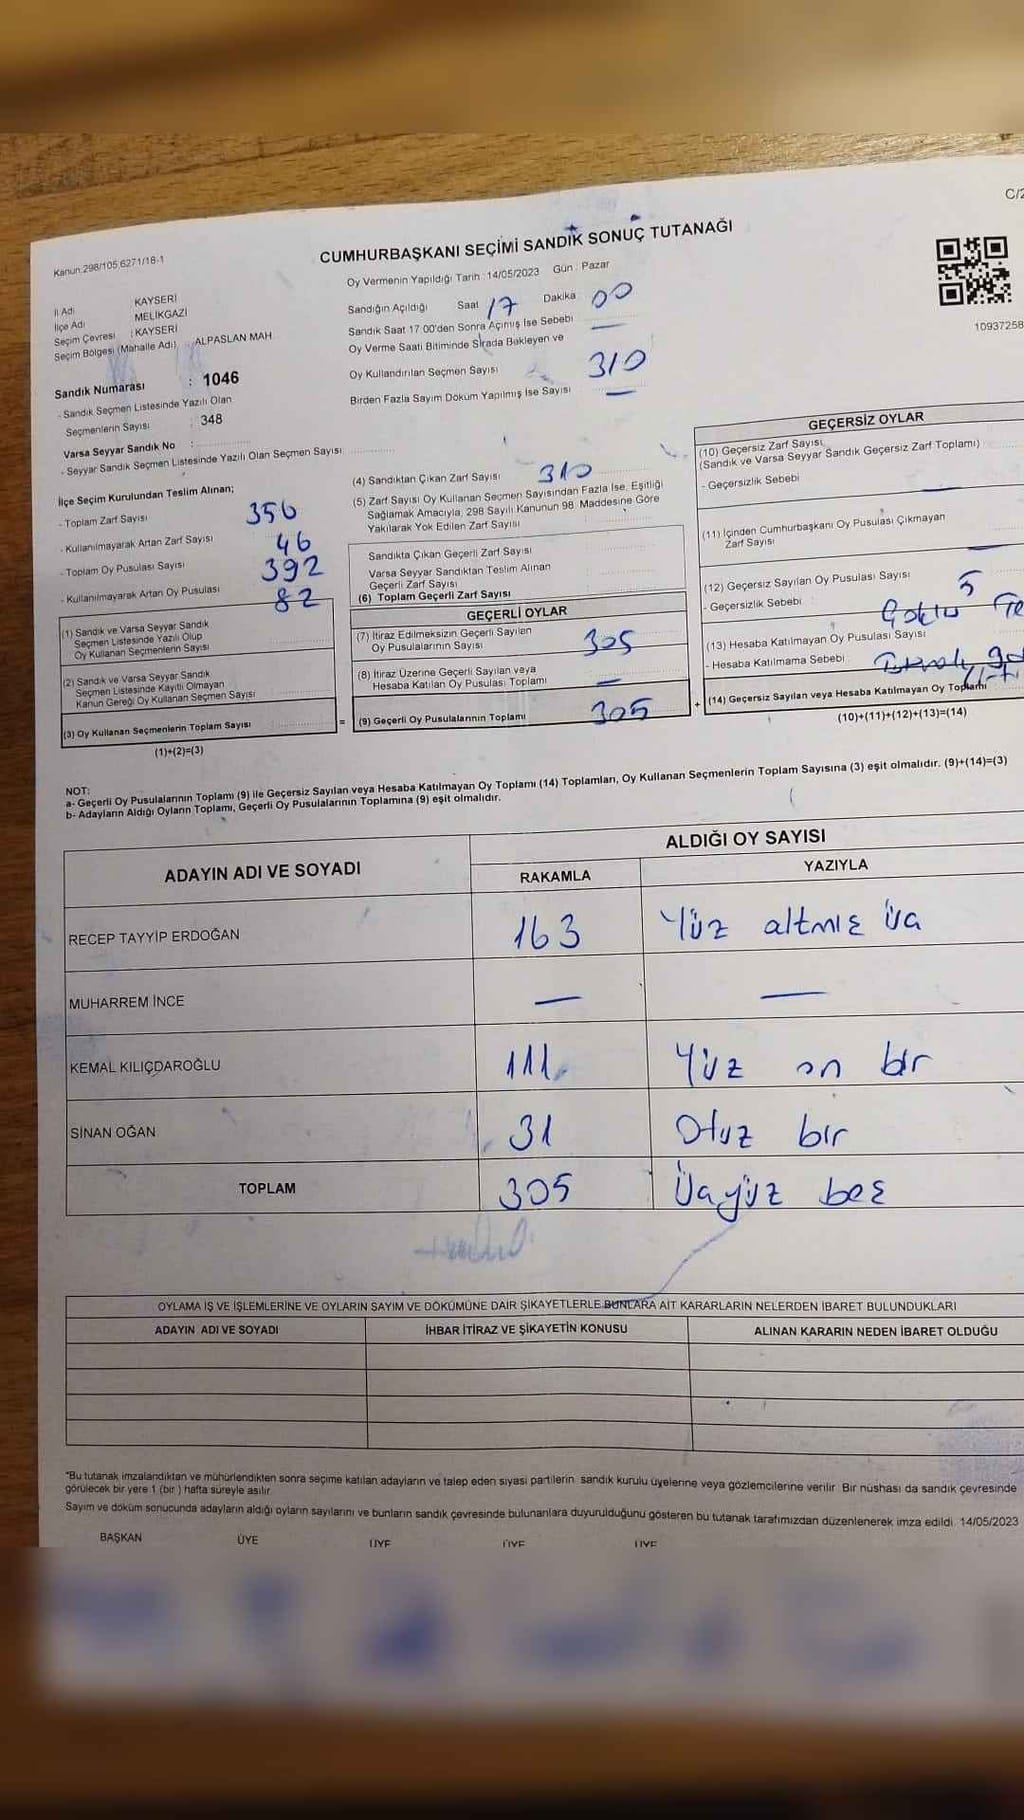 C/2
CUMHURBAŞKANI SEÇİMİ SANDIK SONUÇ TUTANAĞI
Kanun 298/105,6271/18-1
Oy Vermenin Yapıldığı Tarih : 14/05/2023 Gün : Pazar
İl Adı KAYSERİ
İlçe Adı MELİKGAZİ
Seçim Çevresi : KAYSERİ
Seçim Bölgesi (Mahalle Adı) ALPASLAN MAH
Sandığın Açıldığı Saat 17 Dakika 00
Sandık Saat 17 00'den Sonra Açımış İse Sebebi —
Oy Verme Saati Bitiminde Sırada Bekleyen ve
Oy Kullandırılan Seçmen Sayısı 310
Birden Fazla Sayım Döküm Yapılmış İse Sayısı —
10937258
Sandık Numarası : 1046
- Sandık Seçmen Listesinde Yazılı Olan
Seçmenlerin Sayısı : 348
Varsa Seyyar Sandık No :
- Seyyar Sandık Seçmen Listesinde Yazılı Olan Seçmen Sayısı
İlçe Seçim Kurulundan Teslim Alınan;
- Toplam Zarf Sayısı 356
- Kullanılmayarak Artan Zarf Sayısı 46
- Toplam Oy Pusulası Sayısı 392
- Kullanılmayarak Artan Oy Pusulası 82
(1) Sandık ve Varsa Seyyar Sandık
Seçmen Listesinde Yazılı Olup
Oy Kullanan Seçmenlerin Sayısı
(2) Sandık ve Varsa Seyyar Sandık
Seçmen Listesinde Kayıtlı Olmayan
Kanun Gereği Oy Kullanan Seçmen Sayısı
(3) Oy Kullanan Seçmenlerin Toplam Sayısı
(1)+(2)=(3)
=
(4) Sandıktan Çıkan Zarf Sayısı 310
(5) Zarf Sayısı Oy Kullanan Seçmen Sayısından Fazla İse, Eşitliği
Sağlamak Amacıyla, 298 Sayılı Kanunun 98. Maddesine Göre
Yakılarak Yok Edilen Zarf Sayısı
Sandıkta Çıkan Geçerli Zarf Sayısı
Varsa Seyyar Sandıktan Teslim Alınan
Geçerli Zarf Sayısı
(6) Toplam Geçerli Zarf Sayısı
GEÇERLİ OYLAR
(7) İtiraz Edilmeksizin Geçerli Sayılan
Oy Pusulalarının Sayısı 305
(8) İtiraz Üzerine Geçerli Sayılan veya
Hesaba Katılan Oy Pusulası Toplamı —
(9) Geçerli Oy Pusulalarının Toplamı 305
+
GEÇERSİZ OYLAR
(10) Geçersiz Zarf Sayısı
(Sandık ve Varsa Seyyar Sandık Geçersiz Zarf Toplamı)
- Geçersizlik Sebebi —
(11) İçinden Cumhurbaşkanı Oy Pusulası Çıkmayan
Zarf Sayısı —
(12) Geçersiz Sayılan Oy Pusulası Sayısı 5
- Geçersizlik Sebebi :
(13) Hesaba Katılmayan Oy Pusulası Sayısı
- Hesaba Katılmama Sebebi
(14) Geçersiz Sayılan veya Hesaba Katılmayan Oy Toplamı
(10)+(11)+(12)+(13)=(14)
NOT:
a- Geçerli Oy Pusulalarının Toplamı (9) ile Geçersiz Sayılan veya Hesaba Katılmayan Oy Toplamı (14) Toplamları, Oy Kullanan Seçmenlerin Toplam Sayısına (3) eşit olmalıdır. (9)+(14)=(3)
b- Adayların Aldığı Oyların Toplamı, Geçerli Oy Pusulalarının Toplamına (9) eşit olmalıdır.
ADAYIN ADI VE SOYADI ALDIĞI OY SAYISI
RAKAMLA YAZIYLA
RECEP TAYYİP ERDOĞAN 163 Yüz altmış üç
MUHARREM İNCE — —
KEMAL KILIÇDAROĞLU 111 Yüz on bir
SİNAN OĞAN 31 Otuz bir
TOPLAM 305 Üçyüz beş
OYLAMA İŞ VE İŞLEMLERİNE VE OYLARIN SAYIM VE DÖKÜMÜNE DAİR ŞİKAYETLERLE BUNLARA AİT KARARLARIN NELERDEN İBARET BULUNDUKLARI
ADAYIN ADI VE SOYADI İHBAR İTİRAZ VE ŞİKAYETİN KONUSU ALINAN KARARIN NEDEN İBARET OLDUĞU
"Bu tutanak imzalandıktan ve mühürlendikten sonra seçime katılan adayların ve talep eden siyasi partilerin sandık kurulu üyelerine veya gözlemcilerine verilir. Bir nüshası da sandık çevresinde
görülecek bir yere 1 (bir) hafta süreyle asılır.
Sayım ve döküm sonucunda adayların aldığı oyların sayılarını ve bunların sandık çevresinde bulunanlara duyurulduğunu gösteren bu tutanak tarafımızdan düzenlenerek imza edildi. 14/05/2023
BAŞKAN ÜYE ÜYE ÜYE ÜYE